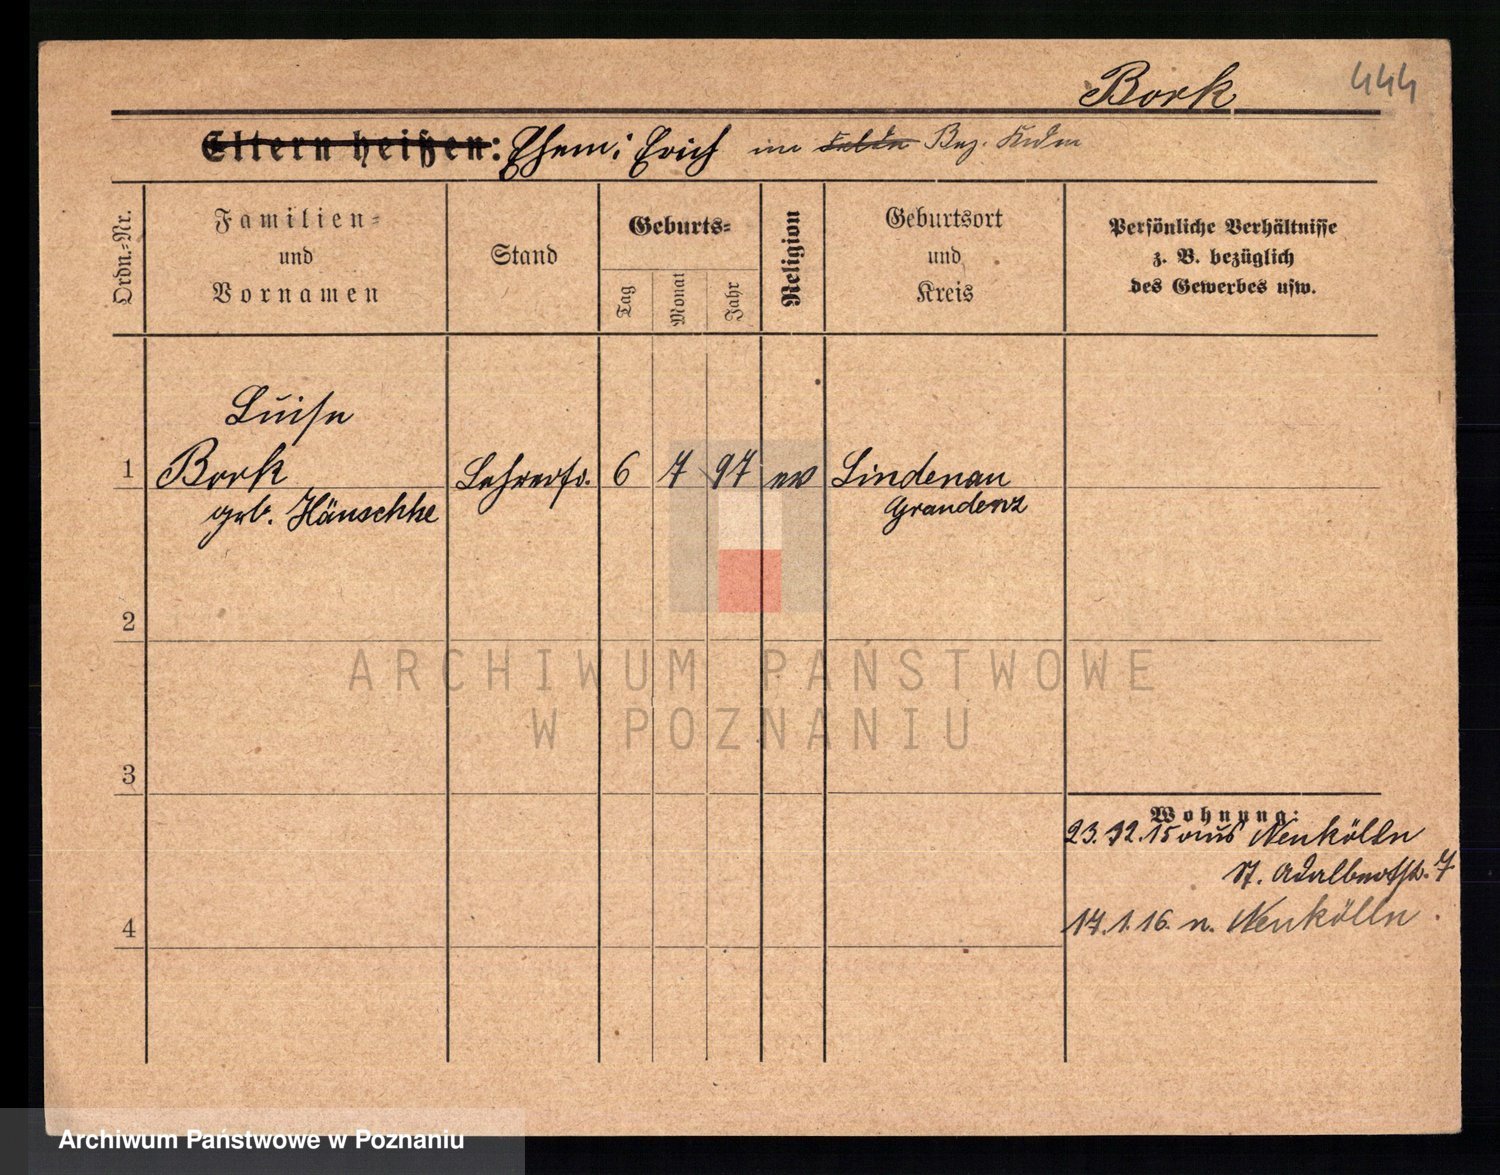 Bork
444
Eltern heißen: Ehem: Erich im
Ordn.-Nr.
Familien-
und
Vornamen
Stand
Geburts-
Tag
Monat
Jahr
Religion
Geburtsort
und
Kreis
Persönliche Verhältnisse
z. B. bezüglich
des Gewerbes usw.
Luise
1 Bork Lehrerfr. 6 7 97 ev Lindenau
geb. Hänschke Graudenz
2
ARCHIWUM PAŃSTWOWE
W POZNANIU
3
Wohnung:
23.12.15 aus Neukölln
St. Adalbertstr. 7
17.1.16. n. Neukölln.
4
Archiwum Państwowe w Poznaniu